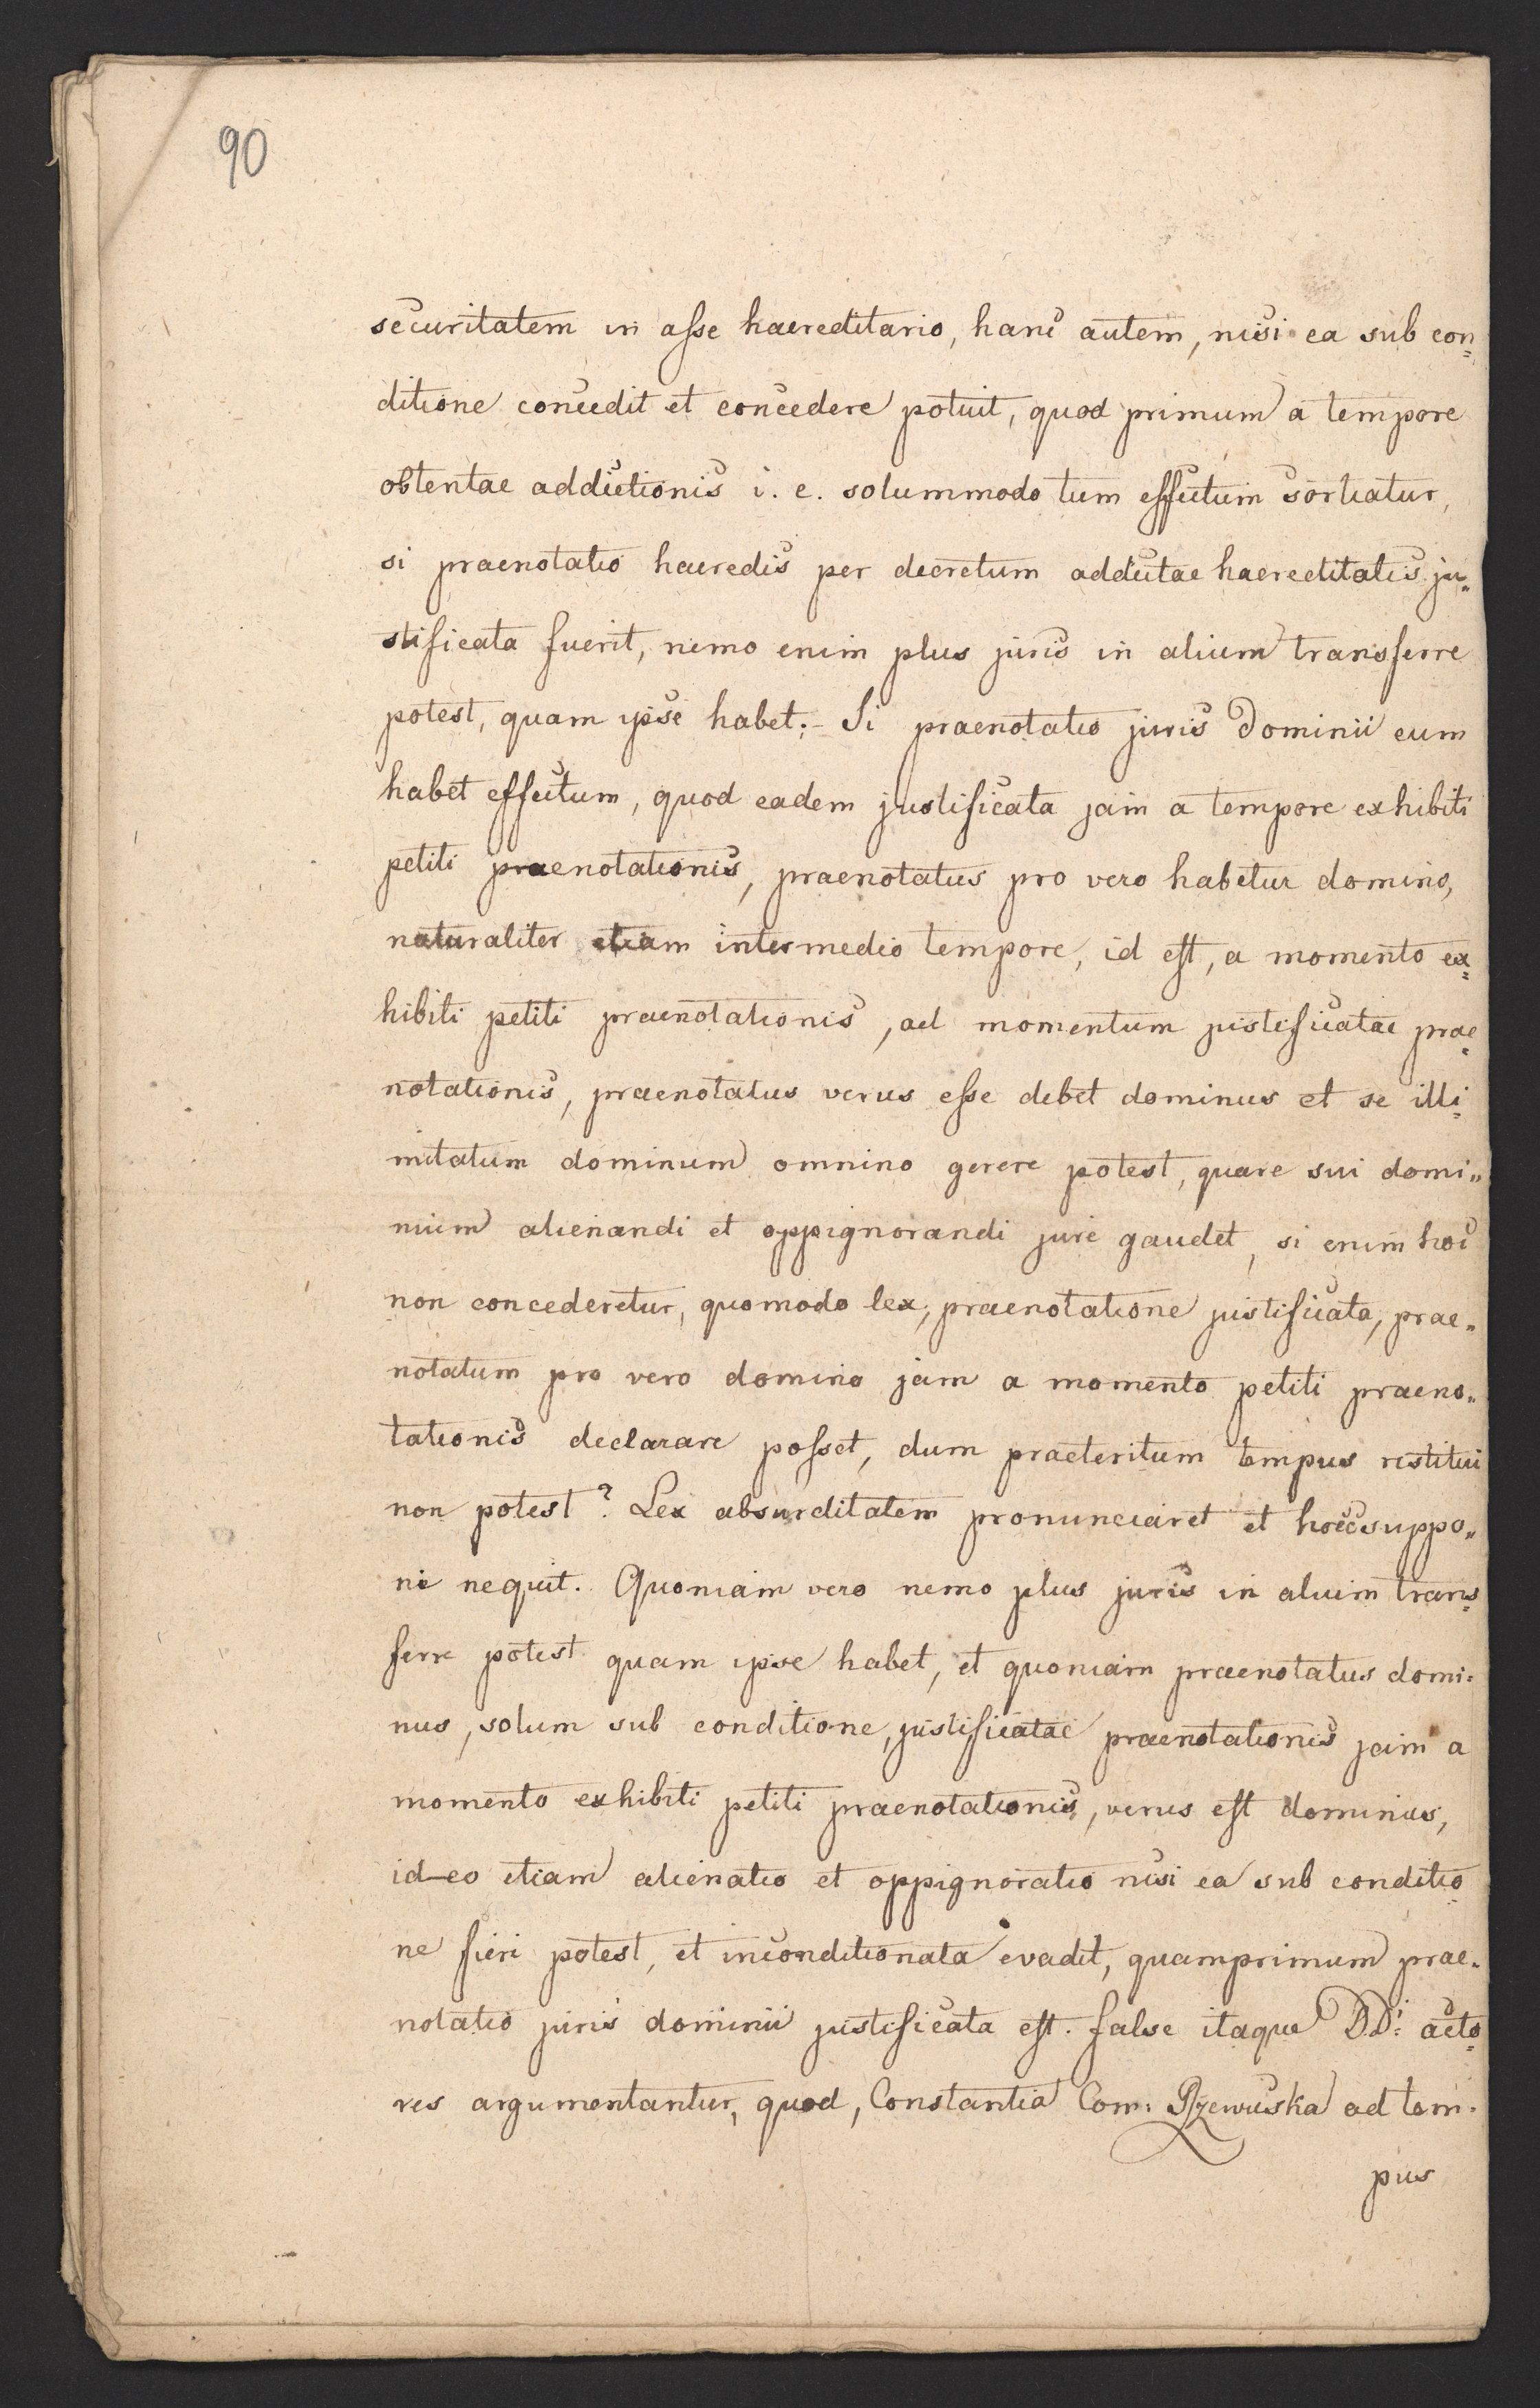 90
securitatem in asse haereditario, hanc autem, nisi ea sub con=
ditione concedit et concedere potuit, quod primum a tempore
obtentae addictionis i. e. solummodo tum effectum sortiatur,
si praenotatio haeredis per decretum addictae haereditatis ju=
stificata fuerit, nemo enim plus juris in alium transferre
potest, quam ipse habet.- Si praenotatio juris Dominii eum
habet effectum, quod eadem justificata jam a tempore exhibiti
petiti praenotationis, praenotatus pro vero habetur domino,
naturaliter etiam intermedio tempore, id est, a momento ex=
hibiti petiti praenotationis, ad momentum justificatae prae=
notationis, praenotatus verus esse debet dominus et se illi=
mitatum dominum omnino gerere potest, quare sui domi=
nium alienandi et oppignorandi jure gaudet, si enim hoc
non concederetur, quomodo lex, praenotatione justificata, prae=
notatum pro vero domino jam a momento petiti praeno=
tationis declarare posset, dum praeteritum tempus restitui
non potest? Lex absurditatem pronunciaret et hocce suppo=
ni nequit. Quoniam vero nemo plus juris in alium trans=
ferre potest quam ipse habet, et quoniam praenotatus domi=
nus, solum sub conditione, justificatae praenotationis jam a
momento exhibiti petiti praenotationis, verus est dominus,
id-eo etiam alienatio et oppignoratio nisi ea sub conditio=
ne fieri potest, et inconditionata evadit, quamprimum prae=
notatio juris dominii justificata est. false itaque DD: acto=
res argumentantur, quod, Constantia Com: Rzewuska ad tem=
pus